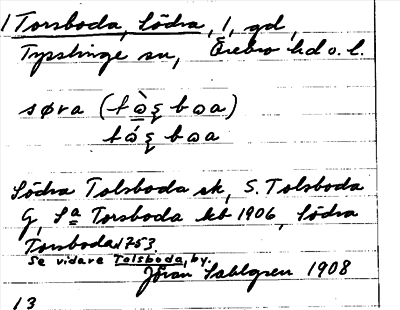 1 Torsboda, Södra, 1, gd,
Tysslinge sn, Örebro hd o. l.
søra (
Södra Tolsboda sk, S. Tolsboda
G, Sa Torsboda kb 1906, Södra
Torsboda 1753.
Se vidare Tolsboda, by.
Jöran Sahlgren 1908
13